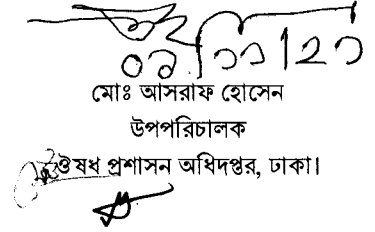 ০৯/১১/২১
মোঃ আসরাফ হোসেন
উপপরিচালক
ঔষধ প্রশাসন অধিদপ্তর, ঢাকা।